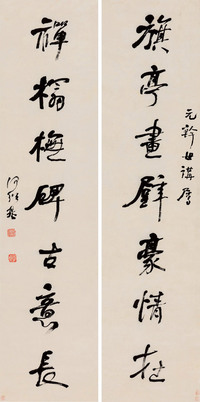 元
世講屬
旗亭畫壁豪情在
禪榻橅碑古意長
何紹基